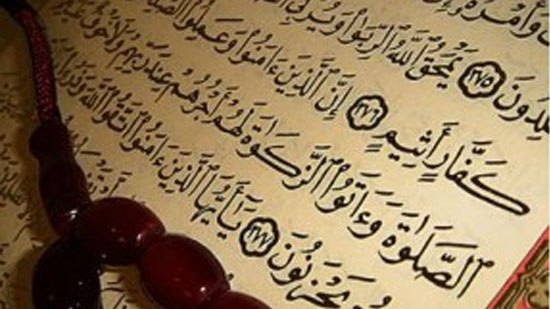 وَأَمْرُهُ
لِدُونَ ٢٧٥ يَمْحَقُ ٱللَّهُ ٱلرِّبَوٰا۟ وَيُرْبِي
كَفَّارٍ أَثِيمٍ ٢٧٦ إِنَّ ٱلَّذِينَ ءَامَنُوا۟ وَعَمِلُوا۟ ٱلصَّ
ٱلصَّلَوٰةَ وَءَاتَوُا۟ ٱلزَّكَوٰةَ لَهُمْ أَجْرُهُمْ عِندَ رَبِّهِمْ وَلَا خَوْفٌ عَلَيْ
يَحْزَنُونَ ٢٧٧ يَٰٓأَيُّهَا ٱلَّذِينَ ءَامَنُوا۟ ٱتَّقُوا۟ ٱللَّهَ وَذَرُوا۟